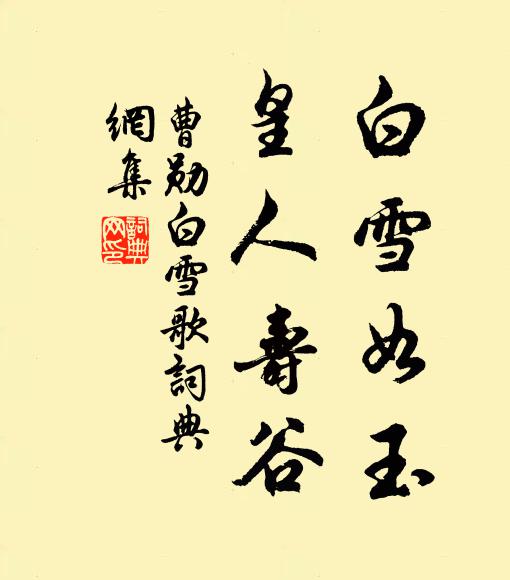 白雪如玉
皇人壽谷
曹勛白雪歌詞典
網集
詞典
网印